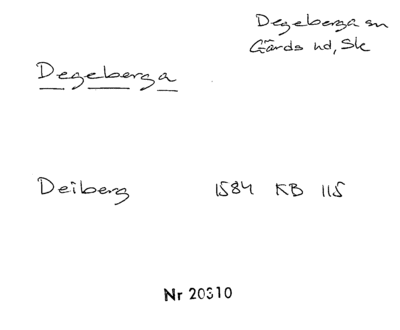 Degeberga sn
Gärds hd, Sk
Degeberga
Deiberg 1584 KB 115
Nr 20310